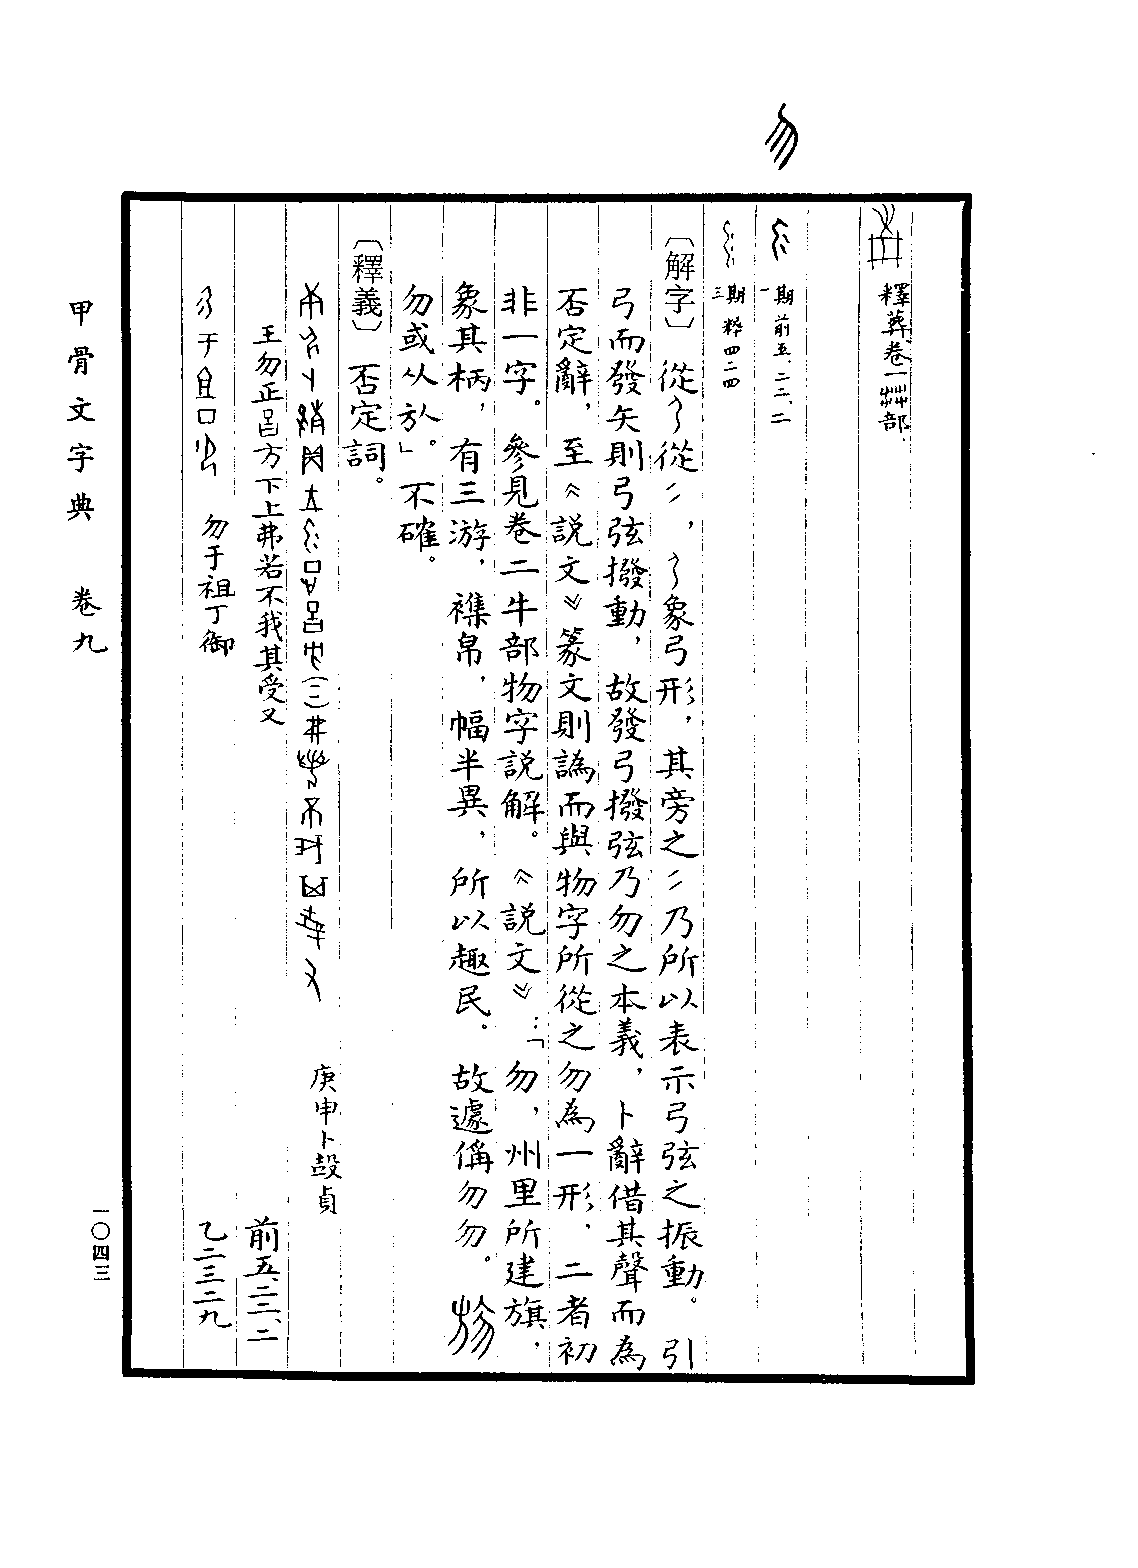 勿
釋葬卷一茻部.
一期 前五.二二.二
三期 粹四二四
〔解字〕從從,象弓形,其旁之乃所以表示弓弦之振動。引
弓而發矢則弓弦撥動,故發弓撥弦乃勿之本義,卜辭借其聲而為
否定辭,至《説文》篆文則譌而與物字所從之勿為一形.二者初
非一字。參見卷二牛部物字説解。《説文》:「勿,州里所建旗,
象其柄,有三游.襍帛,幅半異,所以趣民.故遽偁勿勿.
勿或从㫃。」不確。
〔釋義〕否定詞。
庚申卜㱿貞
王勿正𢀛方下上弗若不我其受又 前五.二二.二
勿于祖丁御 乙二三二九
甲骨文字典 卷九
一〇四三